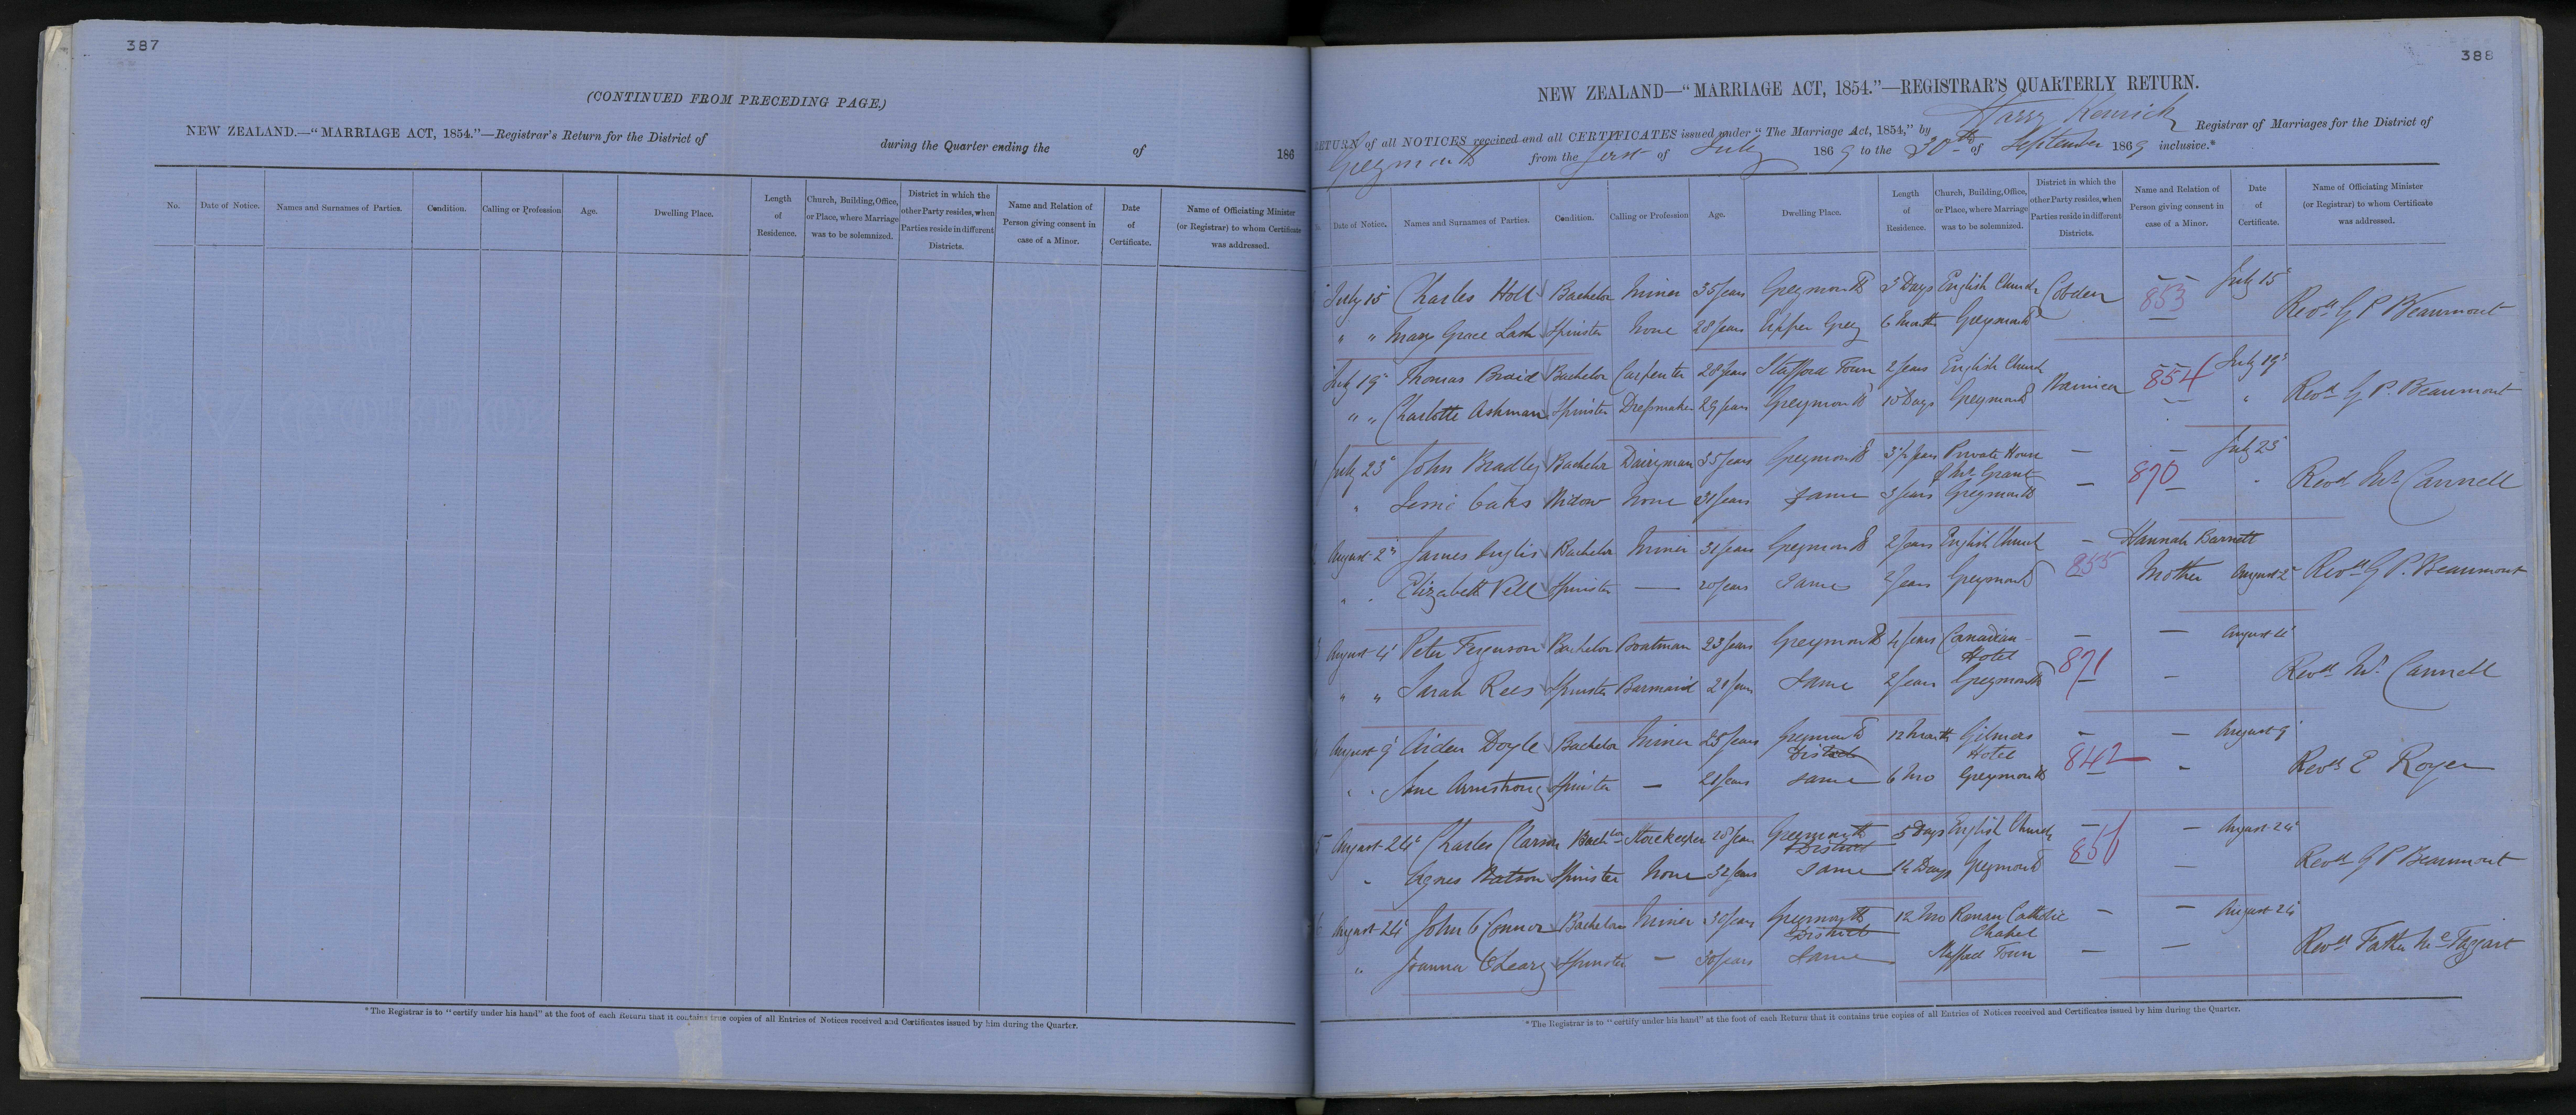 387
(CONTINUED FROM PRECEDING PAGE.)
NEW ZEALAND.—"MARRIAGE ACT, 1854."—Registrar's Return for the District of during the Quarter ending the of 186
No. Date of Notice. Names and Surnames of Parties. Condition. Calling or Profession Age. Dwelling Place. Length of Residence. Church, Building, Office, or Place, where Marriage was to be solemnized. District in which the other Party resides, when Parties reside in different Districts. Name and Relation of Person giving consent in case of a Minor. Date of Certificate. Name of Officiating Minister (or Registrar) to whom Certificate was addressed.
*The Registrar is to "certify under his hand" at the foot of each Return that it contains true copies of all Entries of Notices received and Certificates issued by him during the Quarter.
388
NEW ZEALAND—"MARRIAGE ACT, 1854."—REGISTRAR'S QUARTERLY RETURN.
RETURN of all NOTICES received and all CERTIFICATES issued under "The Marriage Act, 1854," by Harry Kenrick Registrar of Marriages for the District of
Greymouth from the first of July 1869 to the 30th of September 1869 inclusive.*
Date of Notice. Names and Surnames of Parties. Condition. Calling or Profession Age. Dwelling Place. Length of Residence. Church, Building, Office, or Place, where Marriage was to be solemnized. District in which the other Party resides, when Parties reside in different Districts. Name and Relation of Person giving consent in case of a Minor. Date of Certificate. Name of Officiating Minister (or Registrar) to whom Certificate was addressed.
July 15 Charles Holl Bachelor Miner 35 years Greymouth 3 Days English Church Cobden — — 853 July 15 Revd G P Beaumont
" " Mary Grace Lash Spinster None 28 years Upper Grey 6 Months Greymouth
July 19 Thomas Braid Bachelor Carpenter 28 years Stafford Town 2 years English Church Waimea — — 854 July 19 Revd G P. Beaumont
" " Charlotte Ashman Spinster Dressmaker 29 years Greymouth 10 Days Greymouth — — "
July 23 John Bradley Bachelor Dairyman 35 years Greymouth 3½ years Private House — — July 23 Revd Mr Cannell
of Mr Grant 870
" Jessie Oaks Widow None 31 years Same 3 years Greymouth — — "
August 2 James Inglis Bachelor Miner 31 years Greymouth 2 years English Church — Hannah Barnett
" " Elizabeth Pell Spinster — 20 years Same 2 years Greymouth 855 Mother August 2 Revd G P. Beaumont
August 4 Peter Ferguson Bachelor Boatman 23 years Greymouth 4 years Canadian — — August 4 Revd Mr Cannell
Hotel 871
" " Sarah Rees Spinster Barmaid 21 years Same 2 years Greymouth — —
August 9 Aiden Doyle Bachelor Miner 25 years Greymouth 12 Months Gilmers — — August 9 Revd E Royer
District Hotel 842
" " Jane Armstrong Spinster — 21 years Same 6 Mo Greymouth —
5 August 24 Charles Clarson Bachlor Storekeeper 28 years Greymouth 5 Days English Church — — August 24 Revd G P Beaumont
District 856
" Agnes Watson Spinster None 32 years Same 14 Days Greymouth —
August 24 John O'Connor Bachelor Miner 30 years Greymouth 12 Mo Roman Catholic — — August 24 Revd Father McTaggart
District Chapel
" Joanna O'Leary Spinster — 30 years Same Stafford Town — —
*The Registrar is to "certify under his hand" at the foot of each Return that it contains true copies of all Entries of Notices received and Certificates issued by him during the Quarter.